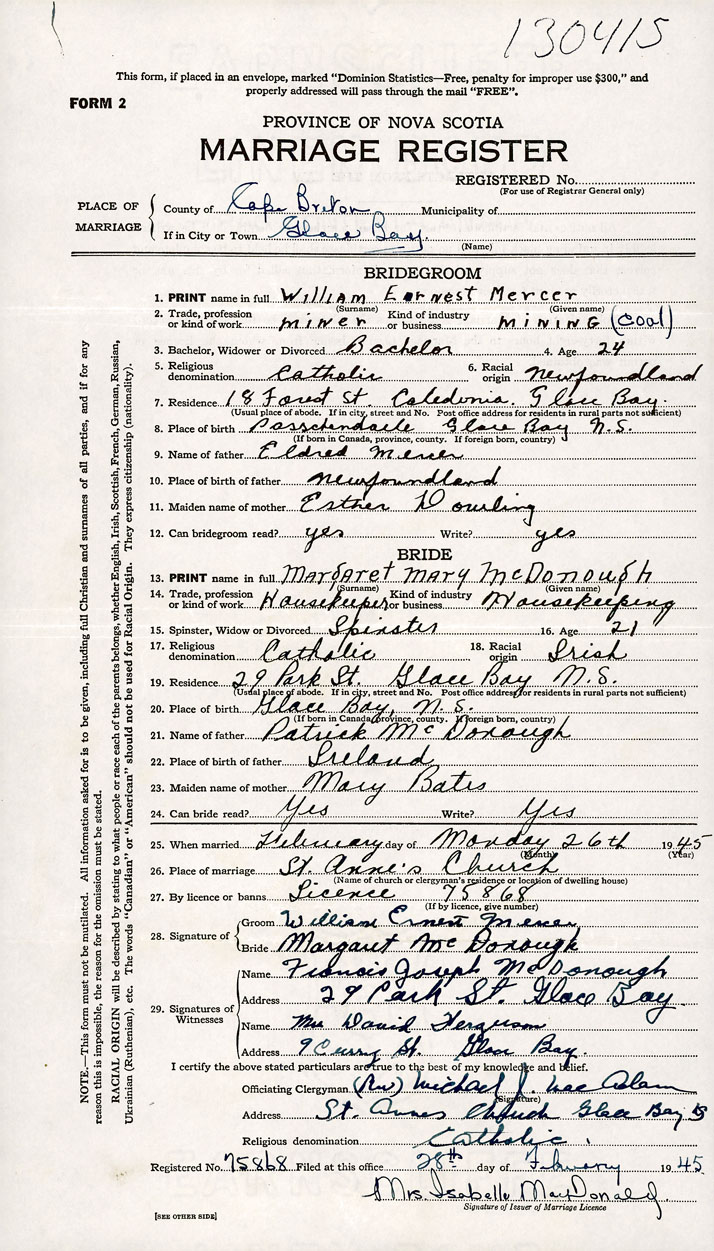 130415
This form, if placed in an envelope, marked "Dominion Statistics—Free, penalty for improper use $300," and
properly addressed will pass through the mail "FREE".
FORM 2
PROVINCE OF NOVA SCOTIA
MARRIAGE REGISTER
REGISTERED No.
(For use of Registrar General only)
PLACE OF MARRIAGE
County of Cape Breton Municipality of
If in City or Town Glace Bay
(Name)
BRIDEGROOM
1. PRINT name in full William Earnest Mercer
(Surname) (Given name)
2. Trade, profession or kind of work miner Kind of industry or business MINING (coal)
3. Bachelor, Widower or Divorced Bachelor 4. Age 24
5. Religious denomination Catholic 6. Racial origin Newfoundland
7. Residence 18 Forest St. Caledonia. Glace Bay.
(Usual place of abode. If in city, street and No. Post office address for residents in rural parts not sufficient)
8. Place of birth Passchendaele Glace Bay N.S.
(If born in Canada, province, county. If foreign born, country)
9. Name of father Eldred Mercer
10. Place of birth of father Newfoundland
11. Maiden name of mother Esther Dowling
12. Can bridegroom read? yes Write? yes
BRIDE
13. PRINT name in full Margaret Mary McDonough
(Surname) (Given name)
14. Trade, profession or kind of work Housekeeper Kind of industry or business Housekeeping
15. Spinster, Widow or Divorced Spinster 16. Age 21
17. Religious denomination Catholic 18. Racial origin Irish
19. Residence 29 Park St. Glace Bay N.S.
(Usual place of abode. If in city, street and No. Post office address for residents in rural parts not sufficient)
20. Place of birth Glace Bay, N.S.
(If born in Canada, province, county. If foreign born, country)
21. Name of father Patrick McDonough
22. Place of birth of father Ireland
23. Maiden name of mother Mary Bates
24. Can bride read? Yes Write? Yes
25. When married February day of Monday 26th 1945
(Month) (Year)
26. Place of marriage St. Anne's Church
(Name of church or clergyman's residence or location of dwelling house)
27. By licence or banns Licence 75868
(If by licence, give number)
28. Signature of
Groom William Ernest Mercer
Bride Margaret McDonough
29. Signatures of Witnesses
Name Francis Joseph McDonough
Address 29 Park St. Glace Bay.
Name Mrs David Ferguson
Address 9 Curry St. Glace Bay.
I certify the above stated particulars are true to the best of my knowledge and belief.
Officiating Clergyman (Rev) Michael J. MacAdam
(Signature)
Address St. Annes Church Glace Bay
Religious denomination Catholic.
Registered No. 75868 Filed at this office 28th day of February 1945.
Mrs. Isabelle MacDonald
Signature of Issuer of Marriage Licence
[SEE OTHER SIDE]
NOTE.—This form must not be mutilated. All information asked for is to be given, including full Christian and surnames of all parties, and if for any
reason this is impossible, the reason for the omission must be stated.
RACIAL ORIGIN will be described by stating to what people or race each of the parents belongs, whether English, Irish, Scottish, French, German, Russian,
Ukrainian (Ruthenian), etc. The words "Canadian" or "American" should not be used for Racial Origin. They express citizenship (nationality).